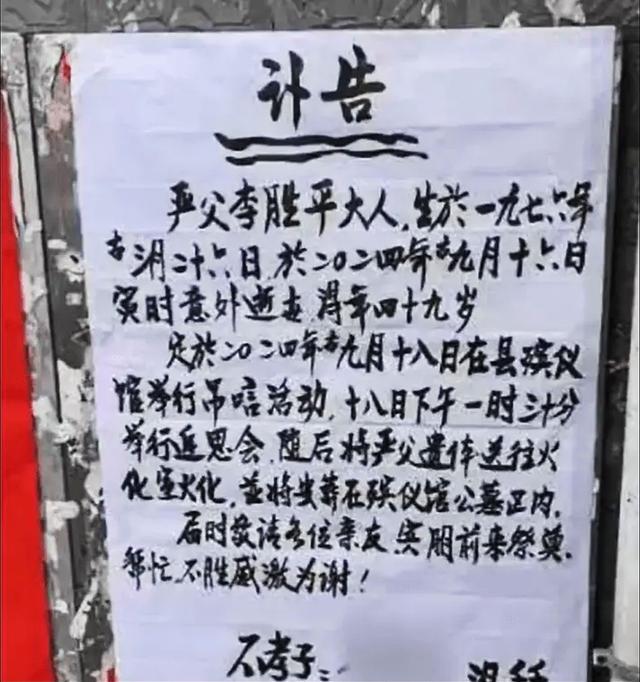 讣告
严父李胜平大人，生於一九七六年
古三月二十六日，於二〇二四年古九月十六日
寅时意外逝去，得年四十九岁
定於二〇二四年古九月十八日在县殡仪
馆举行吊唁活动，十八日下午一时三十分
举行追思会，随后将严父遗体送往火
化室火化，並将安葬在殡仪馆公墓区内。
届时敬请各位亲友、宾朋前来祭奠、
帮忙，不胜感激为谢！
不孝子：